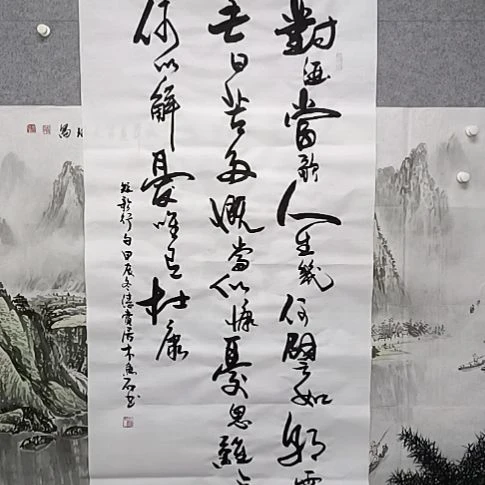 對酒當歌人生幾何譬如朝露
去日苦多慨當以慷憂思難忘
何以解憂唯有杜康
短歌行句甲辰冬